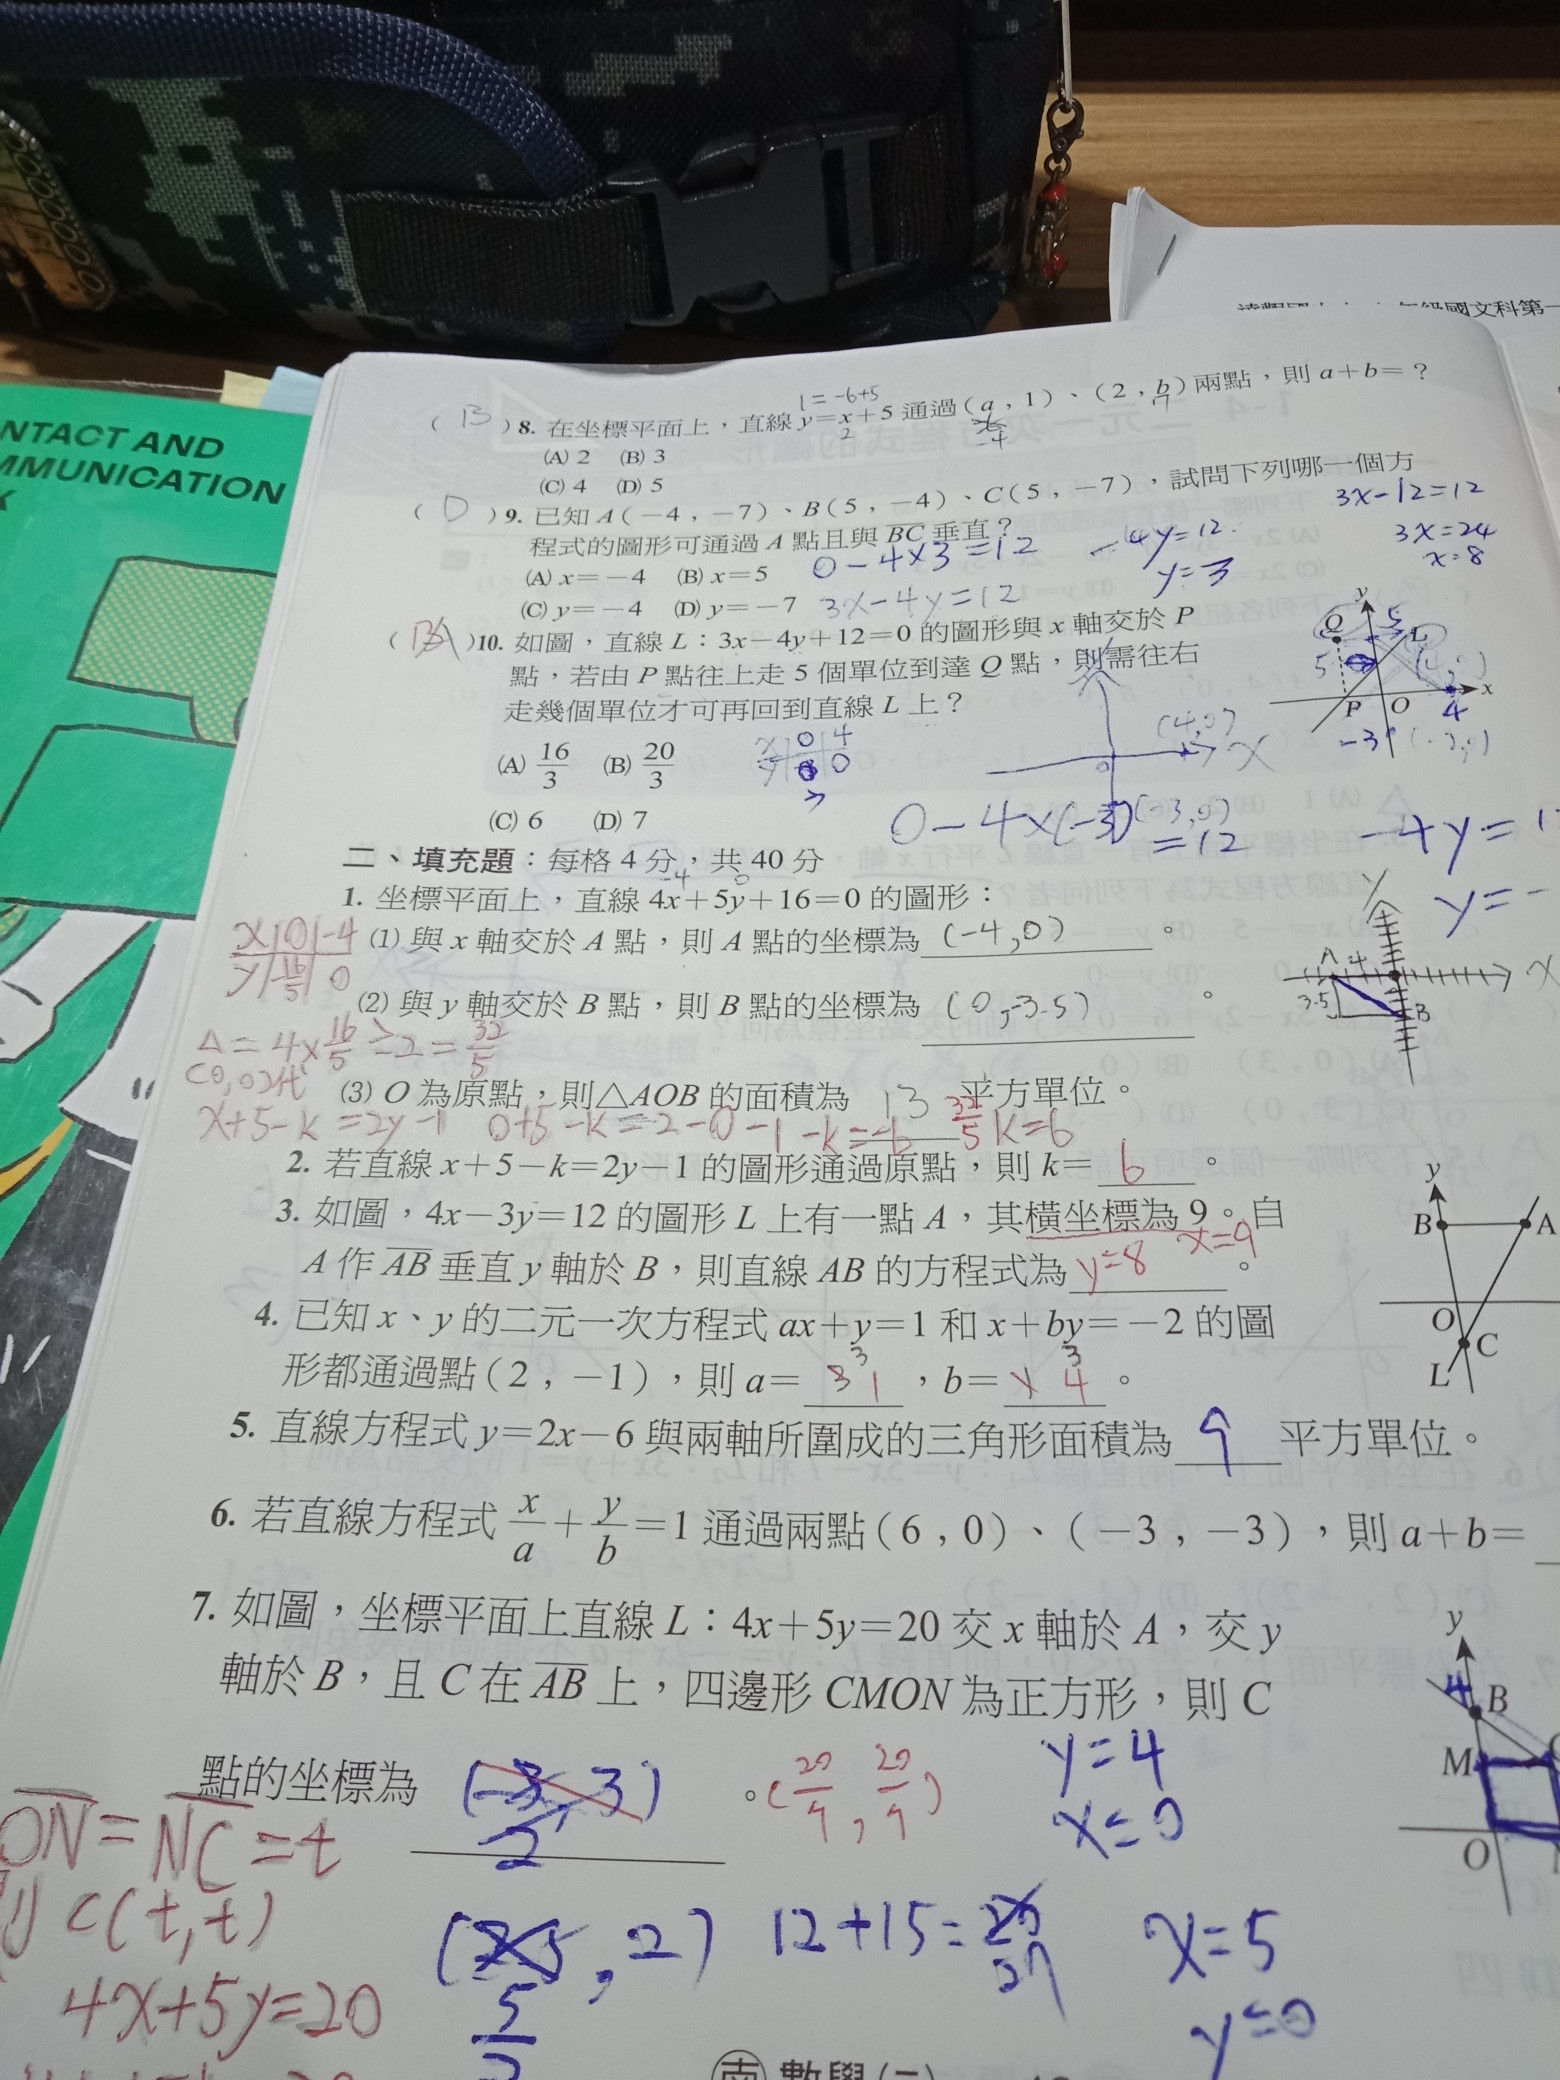 NTACT AND
MMUNICATION
K
年級國文科第一
1=-6+5
( B ) 8. 在坐標平面上，直線 y=x+5 通過(a，1)、(2，b)兩點，則 a+b=？
2
-4
7
(A) 2 (B) 3
(C) 4 (D) 5
( D ) 9. 已知 A(-4，-7)、B(5，-4)、C(5，-7)，試問下列哪一個方
程式的圖形可通過 A 點且與 BC 垂直？
(A) x=-4 (B) x=5
(C) y=-4 (D) y=-7
0-4×3=12
3x-4y=12
-4y=12
y=3
3x-12=12
3x=24
x=8
( BA ) 10. 如圖，直線 L：3x-4y+12=0 的圖形與 x 軸交於 P
點，若由 P 點往上走 5 個單位到達 Q 點，則需往右
走幾個單位才可再回到直線 L 上？
(A) 16/3 (B) 20/3
(C) 6 (D) 7
y
Q 5 L
5
P O 4 x
-3
x 0 4
y 0
(4,0) X
0
(-3,0)
0-4×(-3)=12
-4y=1
y=-
二、填充題：每格 4 分，共 40 分
-4 0
1. 坐標平面上，直線 4x+5y+16=0 的圖形：
x|0|-4
y|-16/5|0
(1) 與 x 軸交於 A 點，則 A 點的坐標為 (-4,0) 。
(2) 與 y 軸交於 B 點，則 B 點的坐標為 (0,-3.5) 。
Y
A 4 X
3.5 B
△=4×16/5÷2=32/5
(0,0)代
(3) O 為原點，則△AOB 的面積為 13 32/5 平方單位。
x+5-k=2y-1 0+5-k=2-0-1 -k=-6 k=6
2. 若直線 x+5-k=2y-1 的圖形通過原點，則 k= 6 。
3. 如圖，4x-3y=12 的圖形 L 上有一點 A，其橫坐標為 9。自
x=9
A 作 AB 垂直 y 軸於 B，則直線 AB 的方程式為 y=8 。
y
B A
O
C
L
4. 已知 x、y 的二元一次方程式 ax+y=1 和 x+by=-2 的圖
3 3
形都通過點(2，-1)，則 a= 1 ，b= 4 。
5. 直線方程式 y=2x-6 與兩軸所圍成的三角形面積為 9 平方單位。
6. 若直線方程式 x/a+y/b=1 通過兩點(6，0)、(-3，-3)，則 a+b=
7. 如圖，坐標平面上直線 L：4x+5y=20 交 x 軸於 A，交 y
軸於 B，且 C 在 AB 上，四邊形 CMON 為正方形，則 C
點的坐標為 (-3/2,3) 。(20/9,20/9)
y
4 B
M
O
y=4
x=0
ON=NC=t
C(t,t)
4x+5y=20
(5/2,2) 12+15=27
x=5
y=0
南 數學(二)